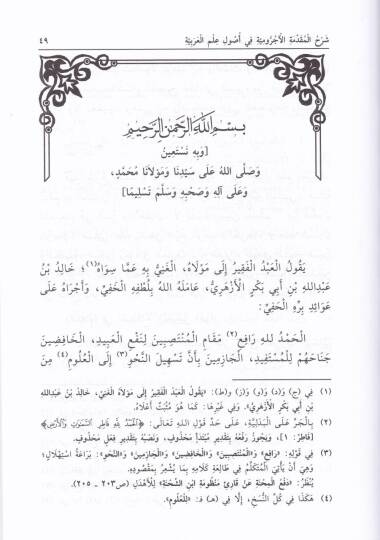 شَرْحُ الْمُقَدِّمَةِ الْآجُرُّومِيَّةِ فِي أُصُولِ عِلْمِ الْعَرَبِيَّةِ ٤٩
بِسْمِ اللَّهِ الرَّحْمَٰنِ الرَّحِيمِ
[وَبِهِ نَسْتَعِينُ
وَصَلَّى اللهُ عَلَى سَيِّدِنَا وَمَوْلَانَا مُحَمَّدٍ،
وَعَلَى آلِهِ وَصَحْبِهِ وَسَلَّمَ تَسْلِيمًا]
يَقُولُ الْعَبْدُ الْفَقِيرُ إِلَى مَوْلَاهُ، الْغَنِيُّ بِهِ عَمَّا سِوَاهُ(١)؛ خَالِدُ بْنُ
عَبْدِاللهِ بْنِ أَبِي بَكْرٍ الْأَزْهَرِيُّ، عَامَلَهُ اللهُ بِلُطْفِهِ الْخَفِيِّ، وَأَجْرَاهُ عَلَى
عَوَائِدِ بِرِّهِ الْحَفِيِّ:
الْحَمْدُ للهِ رَافِعِ(٢) مَقَامِ الْمُنْتَصِبِينَ لِنَفْعِ الْعَبِيدِ، الْخَافِضِينَ
جَنَاحَهُمْ لِلْمُسْتَفِيدِ، الْجَازِمِينَ بِأَنَّ تَسْهِيلَ النَّحْوِ(٣) إِلَى الْعُلُومِ(٤) مِنَ
(١) فِي (ج) وَ(د) وَ(و) وَ(ز) وَ(ط): «يَقُولُ الْعَبْدُ الْفَقِيرُ إِلَى مَوْلَاهُ الْغَنِيِّ، خَالِدُ بْنُ عَبْدِاللهِ
بْنِ أَبِي بَكْرٍ الْأَزْهَرِيُّ». وَفِي غَيْرِهَا: كَمَا هُوَ مُثْبَتٌ أَعْلَاهُ.
(٢) بِالْجَرِّ عَلَى الْبَدَلِيَّةِ، عَلَى حَدِّ قَوْلِ اللهِ تَعَالَى: ﴿الْحَمْدُ لِلَّهِ فَاطِرِ السَّمَوَاتِ وَالْأَرْضِ﴾
[فَاطِر: ١]، وَيَجُوزُ رَفْعُهُ بِتَقْدِيرِ مُبْتَدَإٍ مَحْذُوفٍ، وَنَصْبُهُ بِتَقْدِيرِ فِعْلٍ مَحْذُوفٍ.
(٣) فِي قَوْلِهِ: «رَافِعِ» وَ«الْمُنْتَصِبِينَ» وَ«الْخَافِضِينَ» وَ«الْجَازِمِينَ» وَ«النَّحْوِ»: بَرَاعَةُ اسْتِهْلَالٍ؛
وَهِيَ أَنْ يَأْتِيَ الْمُتَكَلِّمُ فِي طَالِعَةِ كَلَامِهِ بِمَا يُشْعِرُ بِمَقْصُودِهِ.
يُنْظَرُ: «دَفْعُ الْمِحْنَةِ عَنْ قَارِئِ مَنْظُومَةِ ابْنِ الشِّحْنَةِ» لِلْأَهْدَلِ (ص٢٠٣ - ٢٠٥).
(٤) هَكَذَا فِي كُلِّ النُّسَخِ، إِلَّا فِي (هـ) فَـ: «لِلْعُلُومِ».